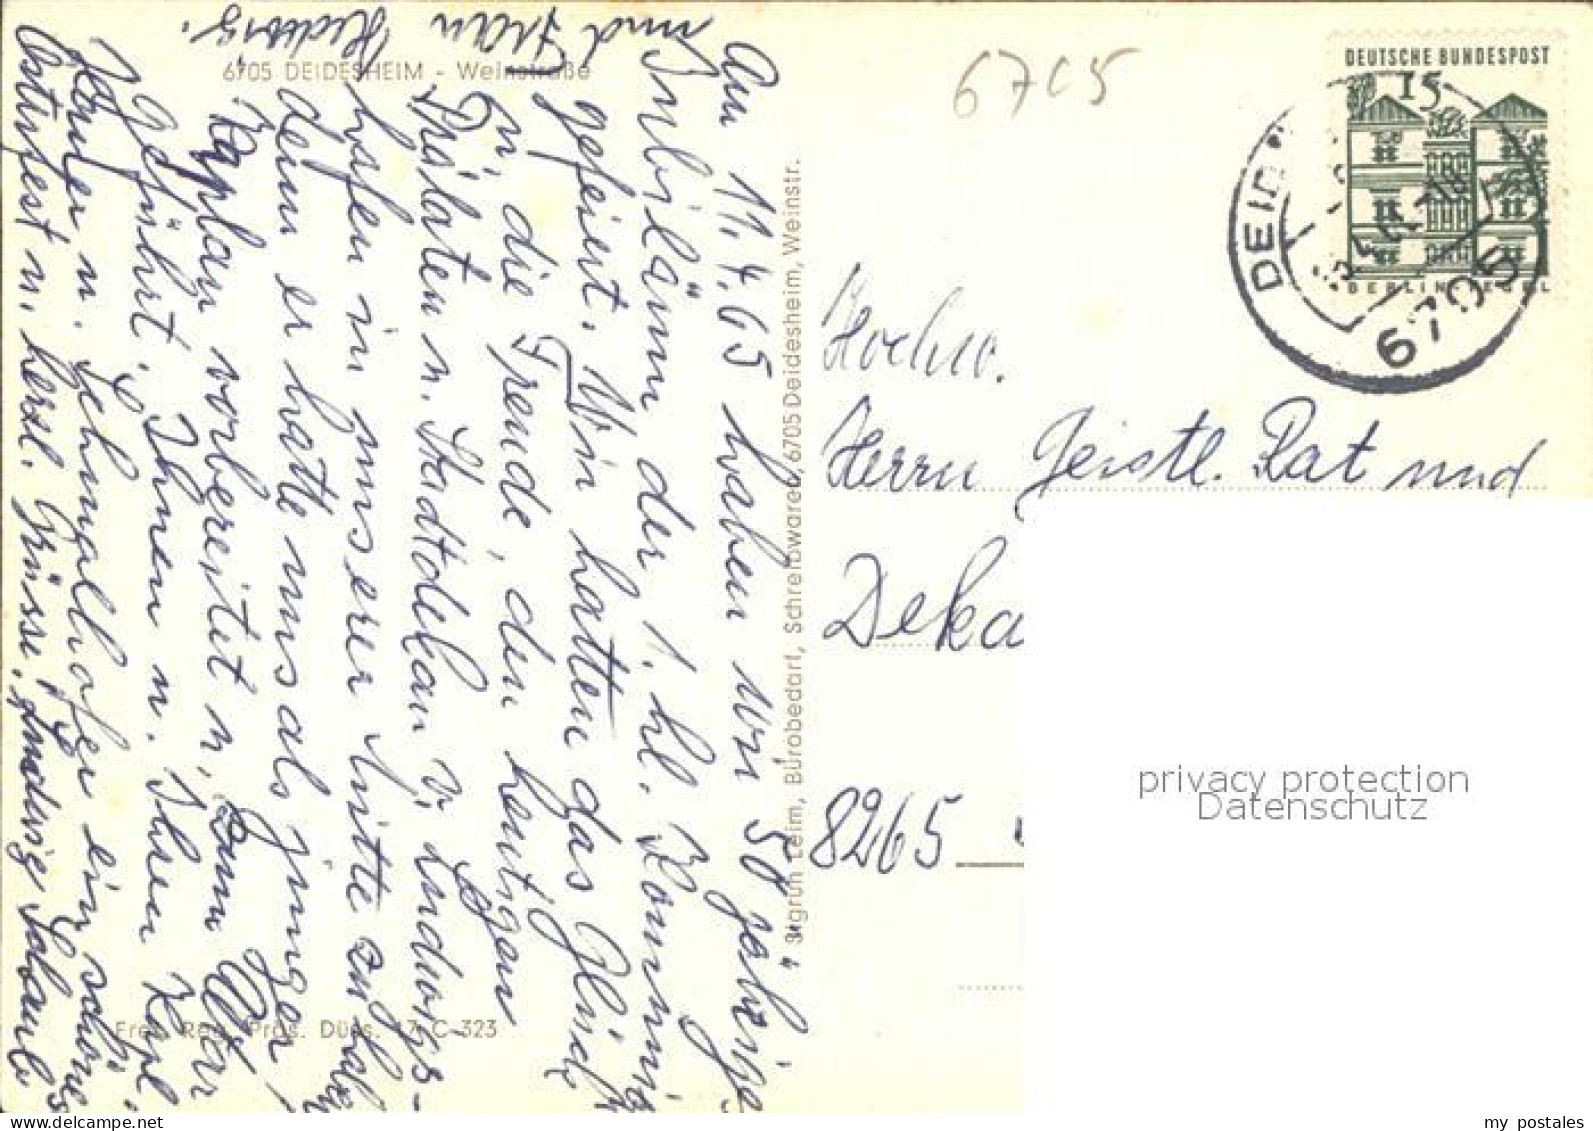 6705 DEIDESHEIM - Weinstraße
Am 11.4.65 haben wir 50 jährige
Jubiläum der 1. hl. Kommunion
gefeiert. Wir hatten das Glück
u. die Freude, den heutigen
Prälaten u. Stadtdekan v. Ludwigs-
hafen in unserer Mitte zu haben
denn er hatte uns als junger
Kaplan vorbereitet u. zum Altar
geführt. Ihnen u. Ihren Kapl.
Karrer u. Schmalhofer ein schönes
Osterfest u. herzl. Grüsse. Ludwig
und Frau Hedwig.
Freig. Reg. Präs. Düss. 17 C-323
Sigrun Leim, Bürobedarf, Schreibwaren, 6705 Deidesheim, Weinstr.
6705
DEUTSCHE BUNDESPOST
15
BERLIN TEGEL
6705
Hochw.
Herrn Geistl. Rat und
Deka
8265
privacy protection
Datenschutz
my postales